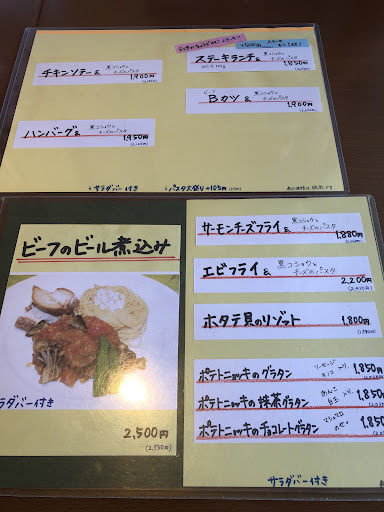 チキンソテー& 黒コショウと
チーズのパスタ
1,900円
ステーキランチ& 黒コショウと
チーズのパスタ
1,850円
ビーフ
Bカツ & 黒コショウと
チーズのパスタ
1,900円
ハンバーグ& 黒コショウと
チーズのパスタ
1,950円
サラダバー付き
パスタ大盛り +105円
ビーフのビール煮込み
ラダバー付き
2,500円
(2,750円)
サーモンチーズフライ& 黒コショウと
チーズのパスタ
1,880円
エビフライ & 黒コショウと
チーズのパスタ
2,200円
(2,420円)
ホタテ貝のリゾット
1,800円
ポテトニョッキのグラタン ソーセージ
キノコ 入り
1,850円
ポテトニョッキの抹茶グラタン あんこ
白玉 入り
1,850円
ポテトニョッキのチョコレートグラタン
1,850円
サラダバー付き